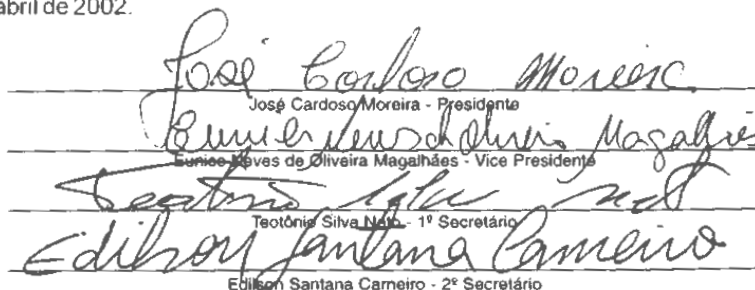 abril de 2002.
José Cardoso Moreira
José Cardoso Moreira - Presidente
Eunice Neves de Oliveira Magalhães
Eunice Neves de Oliveira Magalhães - Vice Presidente
Teotônio Silva Neto
Teotônio Silva Neto - 1º Secretário
Edilson Santana Carneiro
Edilson Santana Carneiro - 2º Secretário